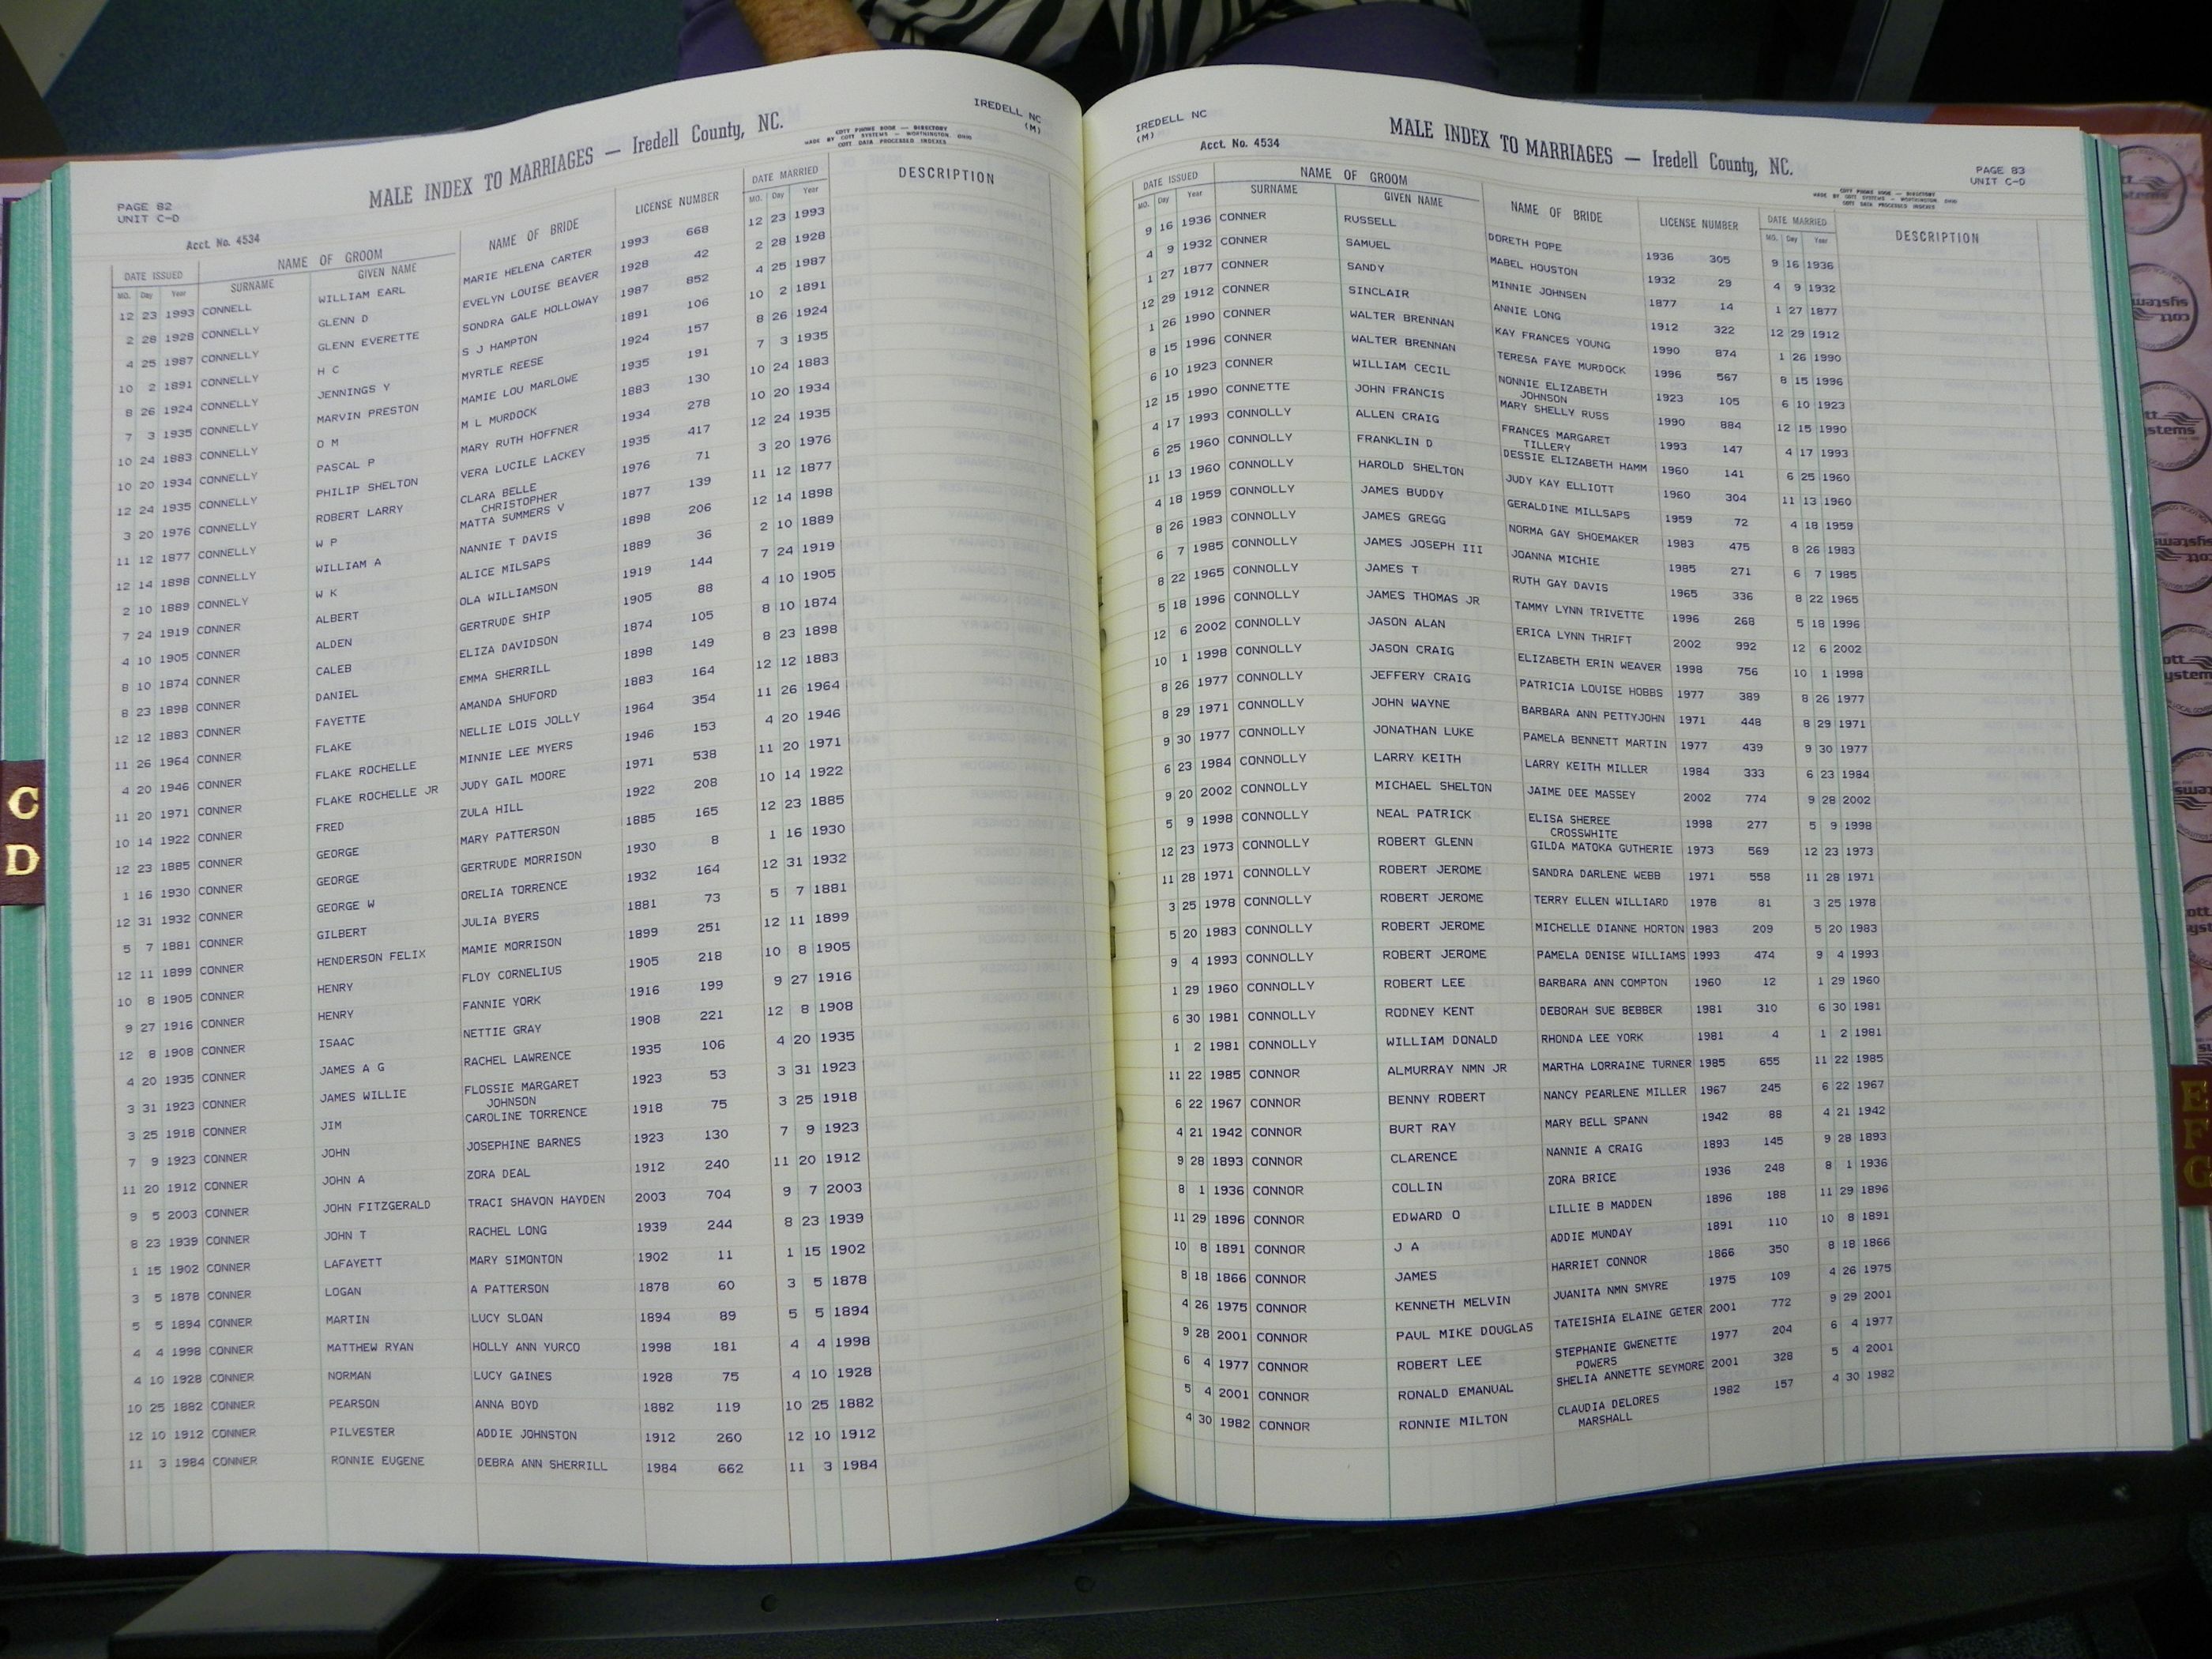 IREDELL NC
(M)
MALE INDEX TO MARRIAGES — Iredell County, NC.
COTT PHONE BOOK — DIRECTORY
MADE BY COTT SYSTEMS — WORTHINGTON, OHIO
COTT DATA PROCESSED INDEXES
PAGE 82
UNIT C-D
Acct. No. 4534
DATE ISSUED NAME OF GROOM NAME OF BRIDE LICENSE NUMBER DATE MARRIED DESCRIPTION
MO. Day Year SURNAME GIVEN NAME MO. Day Year
12 23 1993 CONNELL WILLIAM EARL MARIE HELENA CARTER 1993 668 12 23 1993
2 28 1928 CONNELLY GLENN D EVELYN LOUISE BEAVER 1928 42 2 28 1928
4 25 1987 CONNELLY GLENN EVERETTE SONDRA GALE HOLLOWAY 1987 852 4 25 1987
10 2 1891 CONNELLY H C S J HAMPTON 1891 106 10 2 1891
8 26 1924 CONNELLY JENNINGS Y MYRTLE REESE 1924 157 8 26 1924
7 3 1935 CONNELLY MARVIN PRESTON MAMIE LOU MARLOWE 1935 191 7 3 1935
10 24 1883 CONNELLY O M M L MURDOCK 1883 130 10 24 1883
10 20 1934 CONNELLY PASCAL P MARY RUTH HOFFNER 1934 278 10 20 1934
12 24 1935 CONNELLY PHILIP SHELTON VERA LUCILE LACKEY 1935 417 12 24 1935
3 20 1976 CONNELLY ROBERT LARRY CLARA BELLE 1976 71 3 20 1976
CHRISTOPHER
11 12 1877 CONNELLY W P MATTA SUMMERS V 1877 139 11 12 1877
12 14 1898 CONNELLY WILLIAM A NANNIE T DAVIS 1898 206 12 14 1898
2 10 1889 CONNELY W K ALICE MILSAPS 1889 36 2 10 1889
7 24 1919 CONNER ALBERT OLA WILLIAMSON 1919 144 7 24 1919
4 10 1905 CONNER ALDEN GERTRUDE SHIP 1905 88 4 10 1905
8 10 1874 CONNER CALEB ELIZA DAVIDSON 1874 105 8 10 1874
8 23 1898 CONNER DANIEL EMMA SHERRILL 1898 149 8 23 1898
12 12 1883 CONNER FAYETTE AMANDA SHUFORD 1883 164 12 12 1883
11 26 1964 CONNER FLAKE NELLIE LOIS JOLLY 1964 354 11 26 1964
4 20 1946 CONNER FLAKE ROCHELLE MINNIE LEE MYERS 1946 153 4 20 1946
11 20 1971 CONNER FLAKE ROCHELLE JR JUDY GAIL MOORE 1971 538 11 20 1971
10 14 1922 CONNER FRED ZULA HILL 1922 208 10 14 1922
12 23 1885 CONNER GEORGE MARY PATTERSON 1885 165 12 23 1885
1 16 1930 CONNER GEORGE GERTRUDE MORRISON 1930 8 1 16 1930
12 31 1932 CONNER GEORGE W ORELIA TORRENCE 1932 164 12 31 1932
5 7 1881 CONNER GILBERT JULIA BYERS 1881 73 5 7 1881
12 11 1899 CONNER HENDERSON FELIX MAMIE MORRISON 1899 251 12 11 1899
10 8 1905 CONNER HENRY FLOY CORNELIUS 1905 218 10 8 1905
9 27 1916 CONNER HENRY FANNIE YORK 1916 199 9 27 1916
12 8 1908 CONNER ISAAC NETTIE GRAY 1908 221 12 8 1908
4 20 1935 CONNER JAMES A G RACHEL LAWRENCE 1935 106 4 20 1935
3 31 1923 CONNER JAMES WILLIE FLOSSIE MARGARET 1923 53 3 31 1923
JOHNSON
3 25 1918 CONNER JIM CAROLINE TORRENCE 1918 75 3 25 1918
7 9 1923 CONNER JOHN JOSEPHINE BARNES 1923 130 7 9 1923
11 20 1912 CONNER JOHN A ZORA DEAL 1912 240 11 20 1912
9 5 2003 CONNER JOHN FITZGERALD TRACI SHAVON HAYDEN 2003 704 9 7 2003
8 23 1939 CONNER JOHN T RACHEL LONG 1939 244 8 23 1939
1 15 1902 CONNER LAFAYETT MARY SIMONTON 1902 11 1 15 1902
3 5 1878 CONNER LOGAN A PATTERSON 1878 60 3 5 1878
5 5 1894 CONNER MARTIN LUCY SLOAN 1894 89 5 5 1894
4 4 1998 CONNER MATTHEW RYAN HOLLY ANN YURCO 1998 181 4 4 1998
4 10 1928 CONNER NORMAN LUCY GAINES 1928 75 4 10 1928
10 25 1882 CONNER PEARSON ANNA BOYD 1882 119 10 25 1882
12 10 1912 CONNER PILVESTER ADDIE JOHNSTON 1912 260 12 10 1912
11 3 1984 CONNER RONNIE EUGENE DEBRA ANN SHERRILL 1984 662 11 3 1984
C
D
IREDELL NC
(M)
Acct. No. 4534
MALE INDEX TO MARRIAGES — Iredell County, NC.
PAGE 83
UNIT C-D
COTT PHONE BOOK — DIRECTORY
MADE BY COTT SYSTEMS — WORTHINGTON, OHIO
COTT DATA PROCESSED INDEXES
DATE ISSUED NAME OF GROOM NAME OF BRIDE LICENSE NUMBER DATE MARRIED DESCRIPTION
MO. Day Year SURNAME GIVEN NAME MO. Day Year
9 16 1936 CONNER RUSSELL DORETH POPE 1936 305 9 16 1936
4 9 1932 CONNER SAMUEL MABEL HOUSTON 1932 29 4 9 1932
1 27 1877 CONNER SANDY MINNIE JOHNSEN 1877 14 1 27 1877
12 29 1912 CONNER SINCLAIR ANNIE LONG 1912 322 12 29 1912
1 26 1990 CONNER WALTER BRENNAN KAY FRANCES YOUNG 1990 874 1 26 1990
8 15 1996 CONNER WALTER BRENNAN TERESA FAYE MURDOCK 1996 567 8 15 1996
6 10 1923 CONNER WILLIAM CECIL NONNIE ELIZABETH 1923 105 6 10 1923
JOHNSON
12 15 1990 CONNETTE JOHN FRANCIS MARY SHELLY RUSS 1990 884 12 15 1990
4 17 1993 CONNOLLY ALLEN CRAIG FRANCES MARGARET 1993 147 4 17 1993
TILLERY
6 25 1960 CONNOLLY FRANKLIN D DESSIE ELIZABETH HAMM 1960 141 6 25 1960
11 13 1960 CONNOLLY HAROLD SHELTON JUDY KAY ELLIOTT 1960 304 11 13 1960
4 18 1959 CONNOLLY JAMES BUDDY GERALDINE MILLSAPS 1959 72 4 18 1959
8 26 1983 CONNOLLY JAMES GREGG NORMA GAY SHOEMAKER 1983 475 8 26 1983
6 7 1985 CONNOLLY JAMES JOSEPH III JOANNA MICHIE 1985 271 6 7 1985
8 22 1965 CONNOLLY JAMES T RUTH GAY DAVIS 1965 336 8 22 1965
5 18 1996 CONNOLLY JAMES THOMAS JR TAMMY LYNN TRIVETTE 1996 268 5 18 1996
12 6 2002 CONNOLLY JASON ALAN ERICA LYNN THRIFT 2002 992 12 6 2002
10 1 1998 CONNOLLY JASON CRAIG ELIZABETH ERIN WEAVER 1998 756 10 1 1998
8 26 1977 CONNOLLY JEFFERY CRAIG PATRICIA LOUISE HOBBS 1977 389 8 26 1977
8 29 1971 CONNOLLY JOHN WAYNE BARBARA ANN PETTYJOHN 1971 448 8 29 1971
9 30 1977 CONNOLLY JONATHAN LUKE PAMELA BENNETT MARTIN 1977 439 9 30 1977
6 23 1984 CONNOLLY LARRY KEITH LARRY KEITH MILLER 1984 333 6 23 1984
9 20 2002 CONNOLLY MICHAEL SHELTON JAIME DEE MASSEY 2002 774 9 28 2002
5 9 1998 CONNOLLY NEAL PATRICK ELISA SHEREE 1998 277 5 9 1998
CROSSWHITE
12 23 1973 CONNOLLY ROBERT GLENN GILDA MATOKA GUTHERIE 1973 569 12 23 1973
11 28 1971 CONNOLLY ROBERT JEROME SANDRA DARLENE WEBB 1971 558 11 28 1971
3 25 1978 CONNOLLY ROBERT JEROME TERRY ELLEN WILLIARD 1978 81 3 25 1978
5 20 1983 CONNOLLY ROBERT JEROME MICHELLE DIANNE HORTON 1983 209 5 20 1983
9 4 1993 CONNOLLY ROBERT JEROME PAMELA DENISE WILLIAMS 1993 474 9 4 1993
1 29 1960 CONNOLLY ROBERT LEE BARBARA ANN COMPTON 1960 12 1 29 1960
6 30 1981 CONNOLLY RODNEY KENT DEBORAH SUE BEBBER 1981 310 6 30 1981
1 2 1981 CONNOLLY WILLIAM DONALD RHONDA LEE YORK 1981 4 1 2 1981
11 22 1985 CONNOR ALMURRAY NMN JR MARTHA LORRAINE TURNER 1985 655 11 22 1985
6 22 1967 CONNOR BENNY ROBERT NANCY PEARLENE MILLER 1967 245 6 22 1967
4 21 1942 CONNOR BURT RAY MARY BELL SPANN 1942 88 4 21 1942
9 28 1893 CONNOR CLARENCE NANNIE A CRAIG 1893 145 9 28 1893
8 1 1936 CONNOR COLLIN ZORA BRICE 1936 248 8 1 1936
11 29 1896 CONNOR EDWARD O LILLIE B MADDEN 1896 188 11 29 1896
10 8 1891 CONNOR J A ADDIE MUNDAY 1891 110 10 8 1891
8 18 1866 CONNOR JAMES HARRIET CONNOR 1866 350 8 18 1866
4 26 1975 CONNOR KENNETH MELVIN JUANITA NMN SMYRE 1975 109 4 26 1975
9 28 2001 CONNOR PAUL MIKE DOUGLAS TATEISHIA ELAINE GETER 2001 772 9 29 2001
6 4 1977 CONNOR ROBERT LEE STEPHANIE GWENETTE 1977 204 6 4 1977
POWERS
5 4 2001 CONNOR RONALD EMANUAL SHELIA ANNETTE SEYMORE 2001 328 5 4 2001
4 30 1982 CONNOR RONNIE MILTON CLAUDIA DELORES 1982 157 4 30 1982
MARSHALL
E
F
G